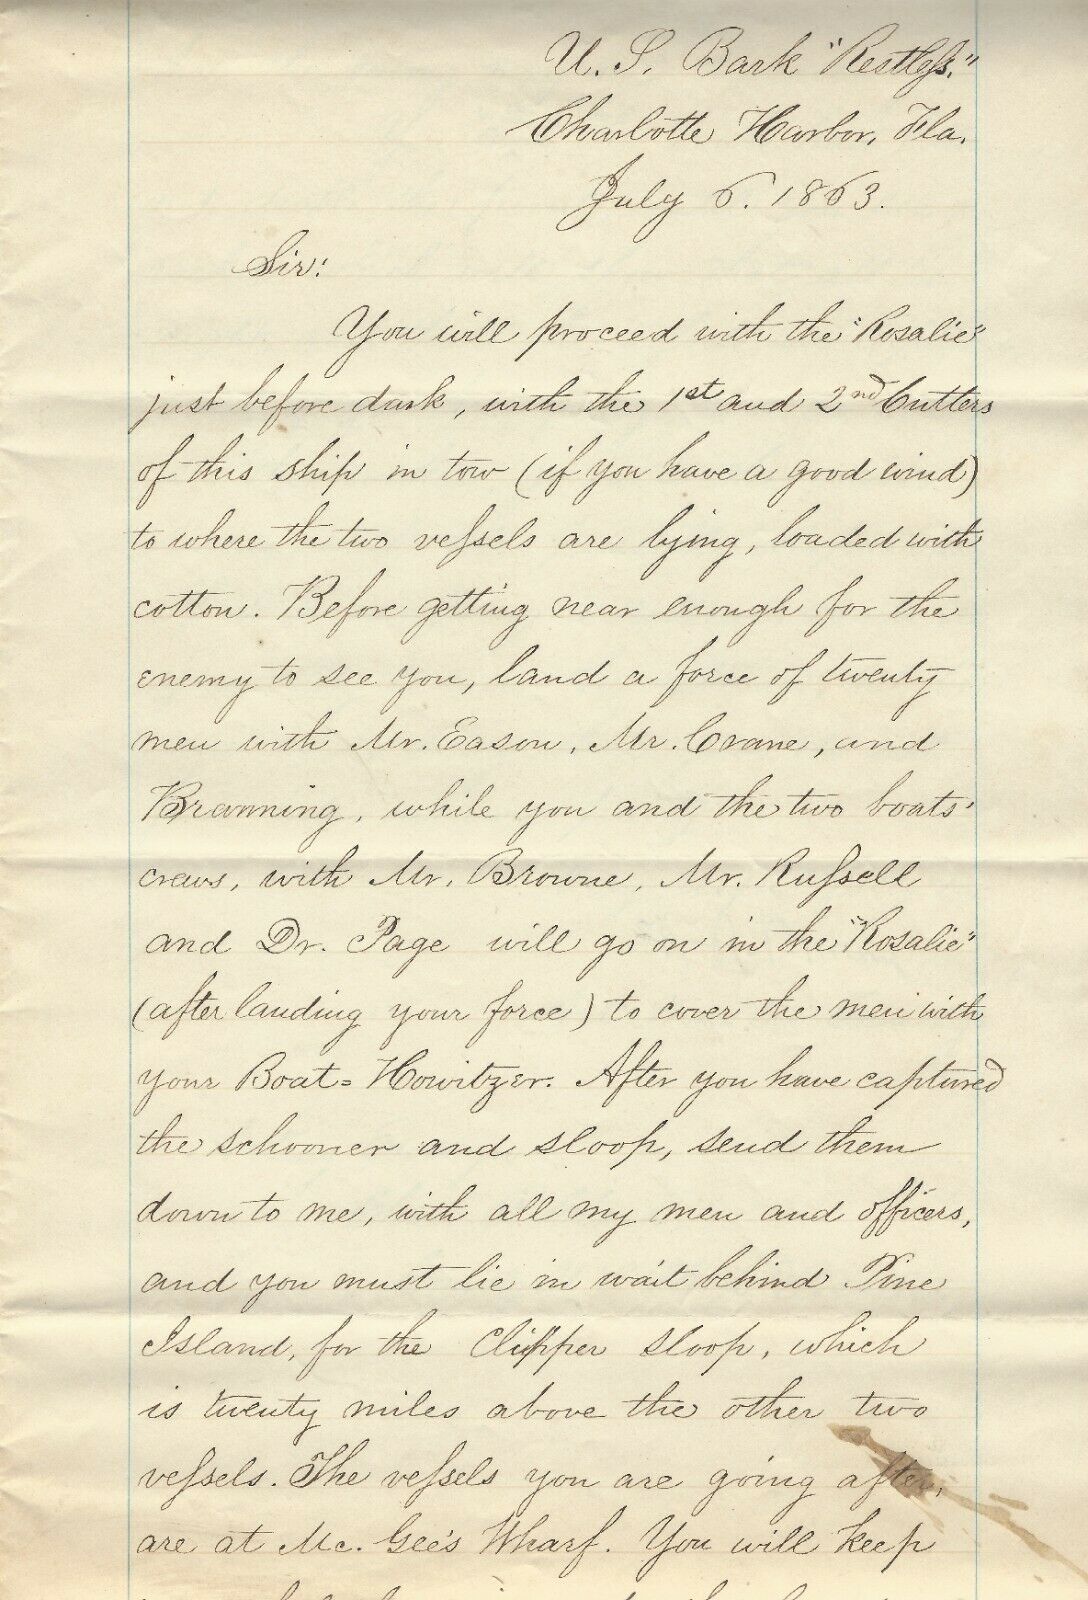 U. S. Bark "Restless."
Charlotte Harbor, Fla.
July 6. 1863.
Sir:
You will proceed with the "Rosalie"
just before dark, with the 1st and 2nd Cutters
of this ship in tow (if you have a good wind)
to where the two vessels are lying, loaded with
cotton. Before getting near enough for the
enemy to see you, land a force of twenty
men with Mr. Eason, Mr. Crane, and
Branning, while you and the two boats'
crews, with Mr. Browne, Mr. Russell
and Dr. Page will go on in the "Rosalie"
(after landing your force) to cover the men with
your Boat=Howitzer. After you have captured
the schooner and sloop, send them
down to me, with all my men and officers,
and you must lie in wait behind Pine
Island, for the Clipper sloop, which
is twenty miles above the other two
vessels. The vessels you are going after,
are at Mc. Gee's Wharf. You will keep